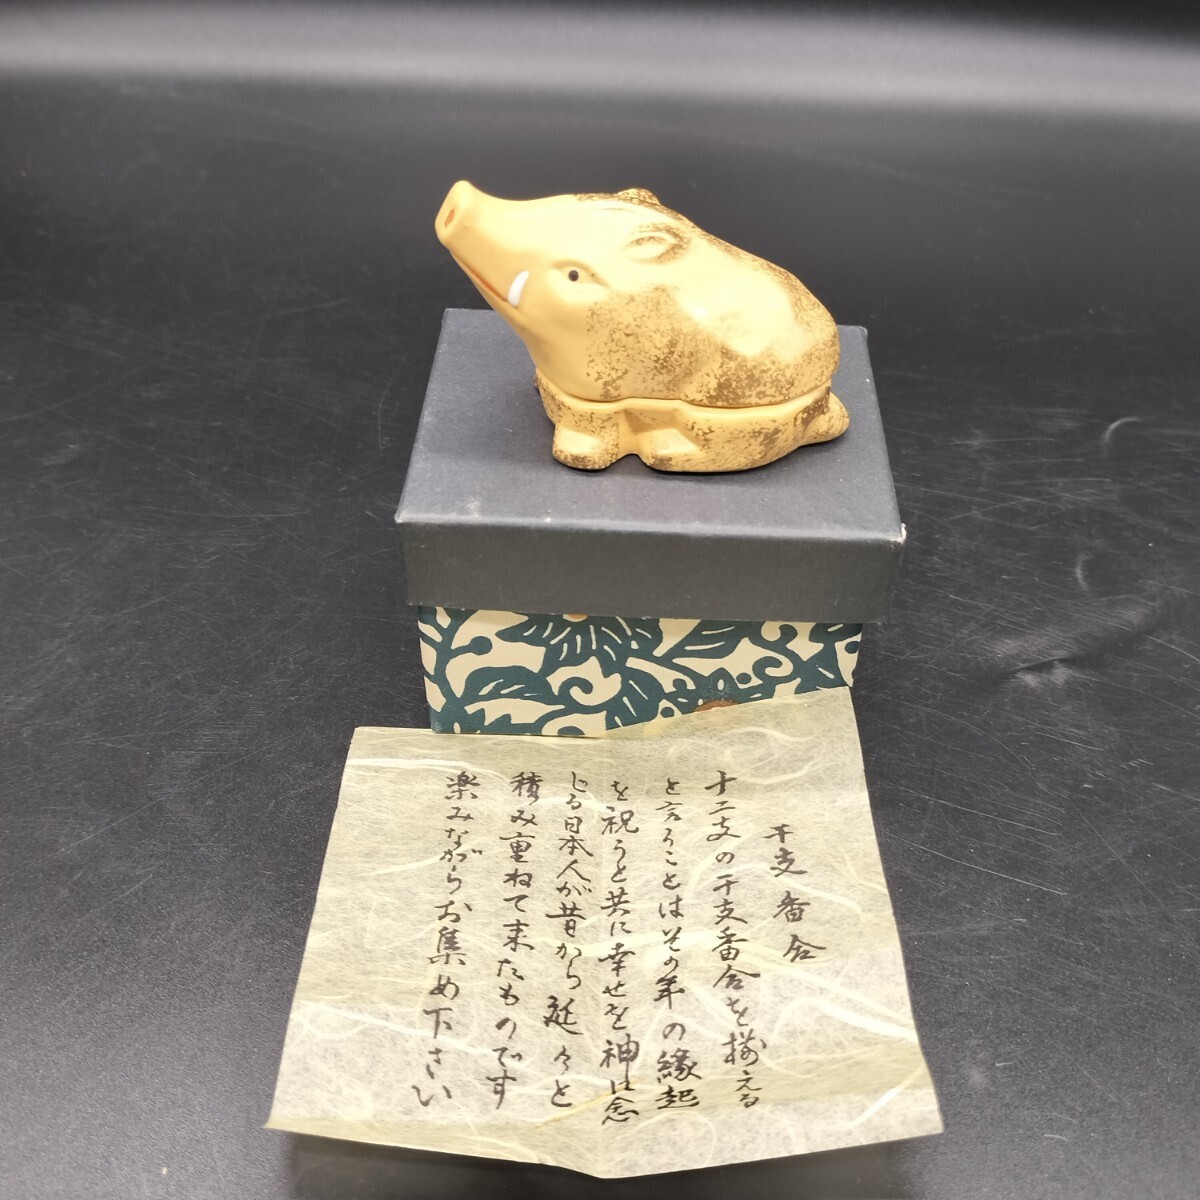 干支番合
十二支の干支番合を揃える
と言うことはその年の縁起
を祝うと共に幸せを神に念
じる日本人が昔から延々と
積み重ねて来たものです
楽みながらお集め下さい